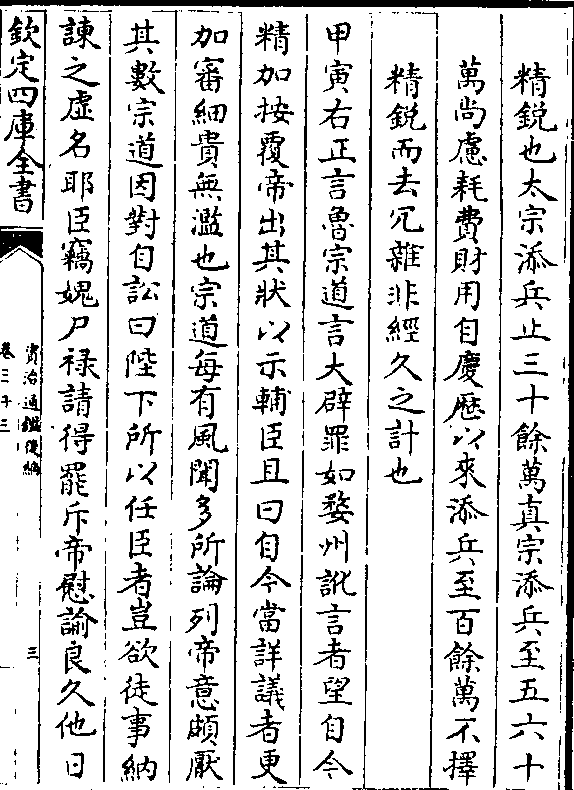 精鋭也太宗添兵止三十餘萬真宗添兵至五六十
萬尚慮耗費財用自慶歴以來添兵至百餘萬不擇
精鋭而去冗雜非經久之計也
甲寅右正言魯宗道言大辟罪如婺州訛言者望自今
精加按覆帝出其狀以示輔臣且曰自今當詳議者更
加審細貴無濫也宗道每有風聞多所論列帝意頗厭
其數宗道因對自訟曰陛下所以任臣者豈欲徒事納
諫之虚名耶臣竊媿尸禄請得罷斥帝慰諭良久他日
欽定四庫全書
資治通鑑後編
卷三十三
三